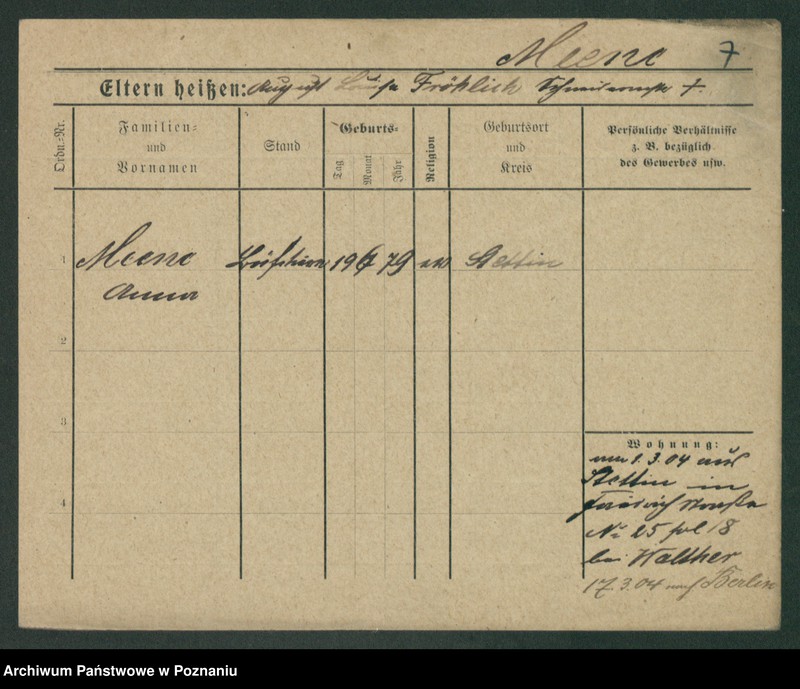 Meene 7
Eltern heißen: August Luise Fröhlich †.
Ordn.-Nr.
Familien-
und
Vornamen
Stand
Geburts-
Tag
Monat
Jahr
Religion
Geburtsort
und
Kreis
Persönliche Verhältnisse
z. B. bezüglich
des Gewerbes usw.
1 Meene 19 6 79 ev Stettin
Anna
2
3
4
Wohnung:
1.3.04 aus
Stettin in
Friedrichstraße
No 25 pol 18
bei Walther
17.3.04 nach Berlin
Archiwum Państwowe w Poznaniu